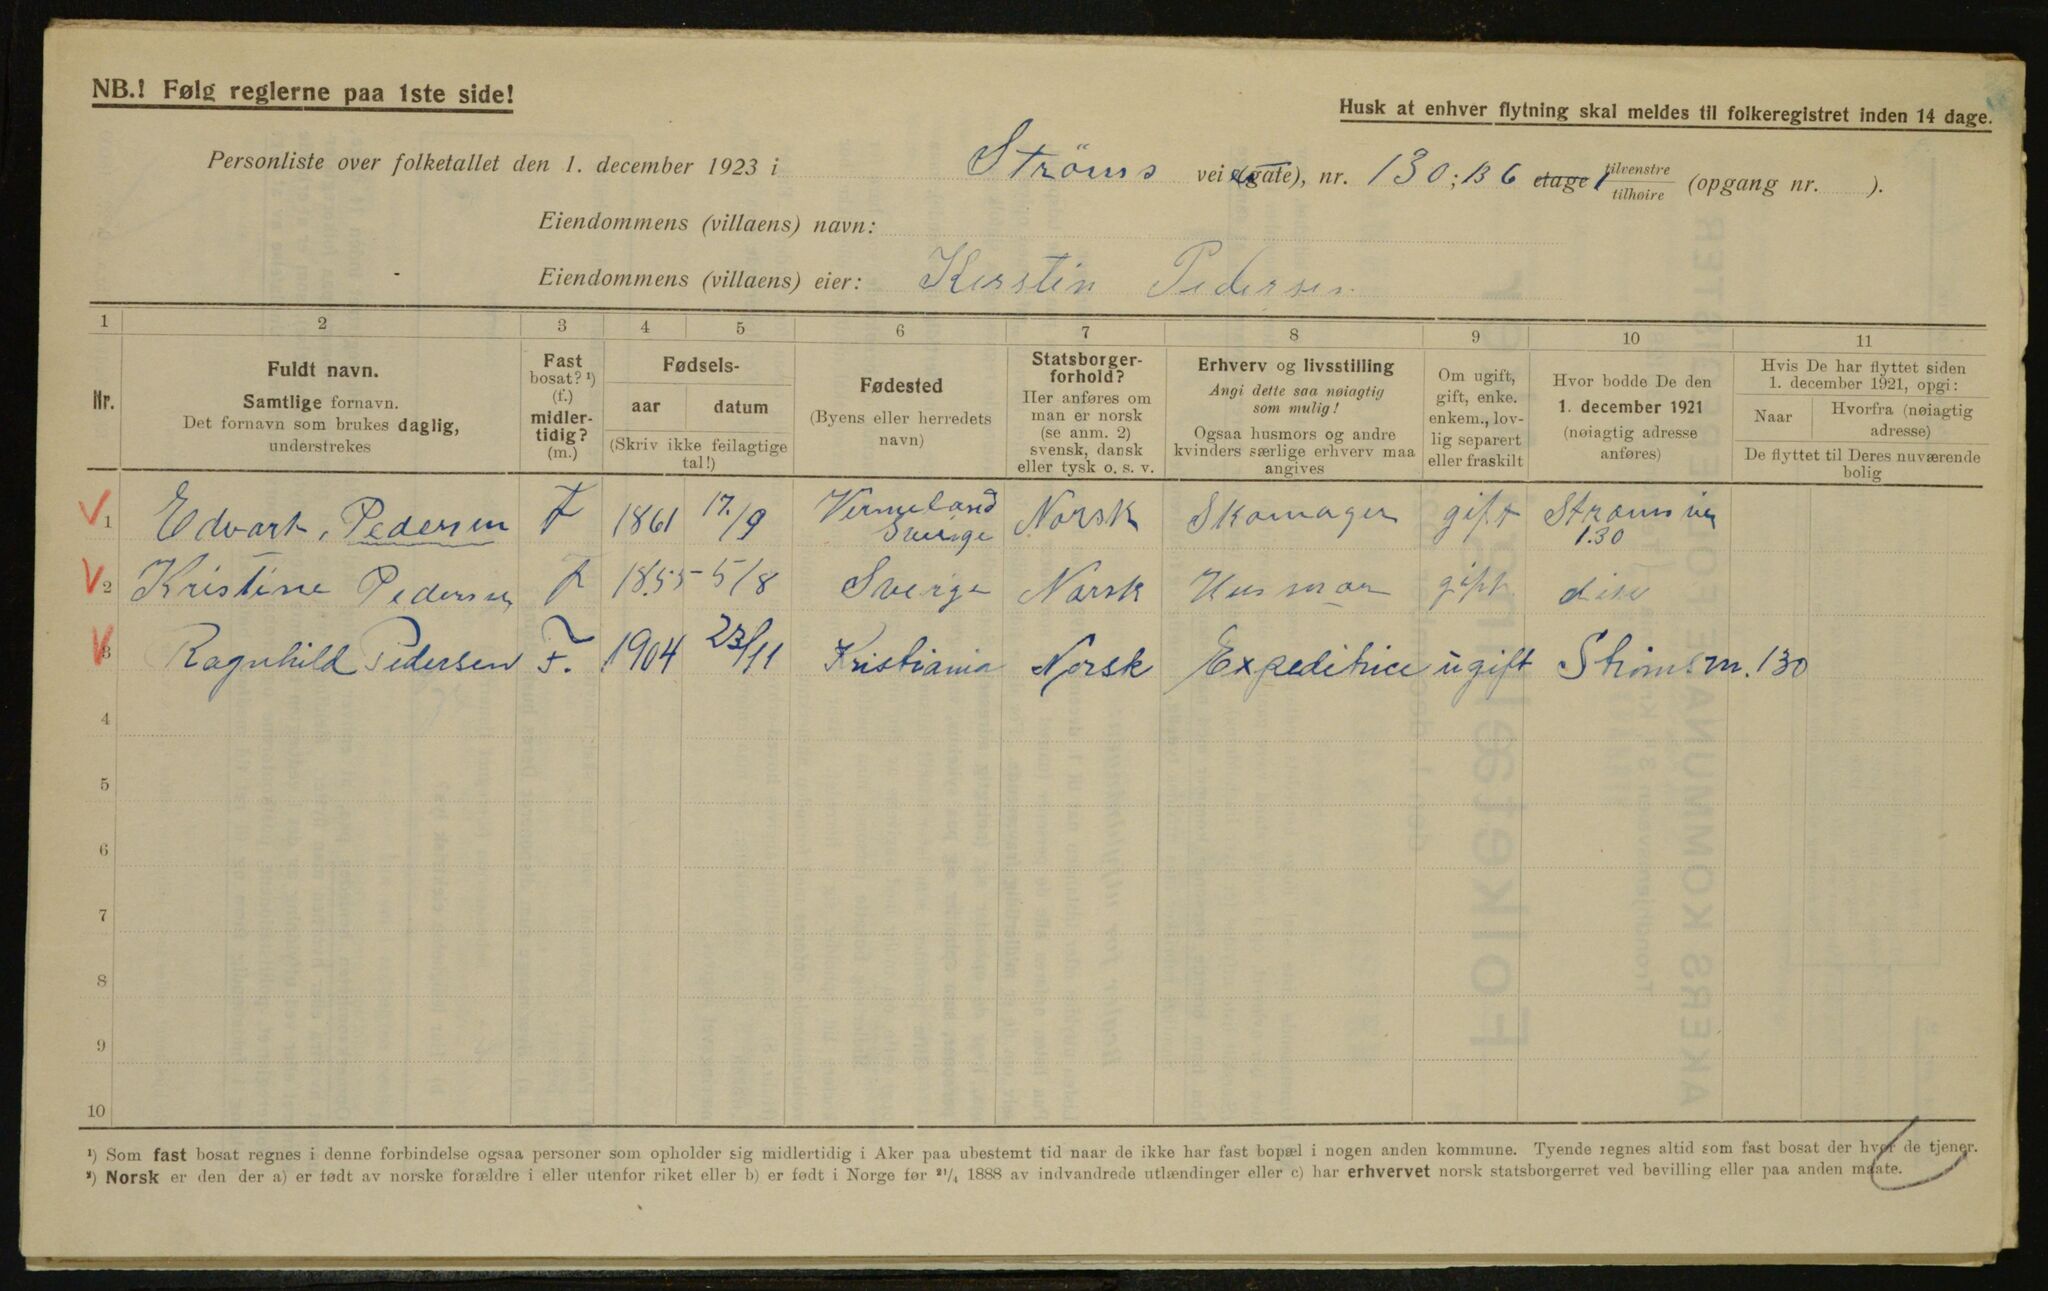 NB.! Følg reglerne paa 1ste side!
Husk at enhver flytning skal meldes til folkeregistret inden 14 dage.
Personliste over folketallet den 1. december 1923 i Ströms vei (gate), nr. 130; B 6 etage tilvenstre tilhøire (opgang nr. ).
Eiendommens (villaens) navn:
Eiendommens (villaens) eier: Kerstin Pedersen
1 2 3 4 5 6 7 8 9 10 11
Nr.
Fuldt navn.
Samtlige fornavn.
Det fornavn som brukes daglig,
understrekes
Fast
bosat? ¹)
(f.)
midler-
tidig?
(m.)
Fødsels-
aar datum
(Skriv ikke feilagtige
tal!)
Fødested
(Byens eller herredets
navn)
Statsborger-
forhold?
Her anføres om
man er norsk
(se anm. 2)
svensk, dansk
eller tysk o. s. v.
Erhverv og livsstilling
Angi dette saa nøiagtig
som mulig!
Ogsaa husmors og andre
kvinders særlige erhverv maa
angives
Om ugift,
gift, enke.
enkem., lov-
lig separert
eller fraskilt
Hvor bodde De den
1. december 1921
(nøiagtig adresse
anføres)
Hvis De har flyttet siden
1. december 1921, opgi:
Naar Hvorfra (nøiagtig
adresse)
De flyttet til Deres nuværende
bolig
1 Edvart, Pedersen f 1861 17./9 Vermeland Sverige Norsk Skomager gift Strøms vei 130
2 Kristine Pedersen f 1855 5/8 Sverige Norsk Husmor gift
3 Ragnhild Pedersen F. 1904 23/11 Kristiania Norsk Expeditrice ugift Strømsv. 130
4
5
6
7
8
9
10
¹) Som fast bosat regnes i denne forbindelse ogsaa personer som opholder sig midlertidig i Aker paa ubestemt tid naar de ikke har fast bopæl i nogen anden kommune. Tyende regnes altid som fast bosat der hvor de tjener.
²) Norsk er den der a) er født av norske forældre i eller utenfor riket eller b) er født i Norge før ²¹/₄ 1888 av indvandrede utlændinger eller c) har erhvervet norsk statsborgerret ved bevilling eller paa anden maate.